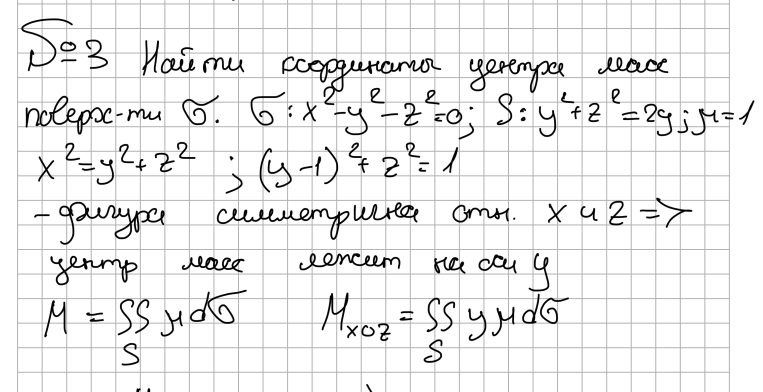 №3 Найти координаты центра масс
поверх-ти σ. σ: x²-y²-z²=0; S: y²+z²=2y; μ=1
x²=y²+z² ; (y-1)²+z²=1
- фигура симметрична отн. x и z =>
центр масс лежит на оси y
M = ∬ μdσ M_xoz = ∬ yμdσ
S S